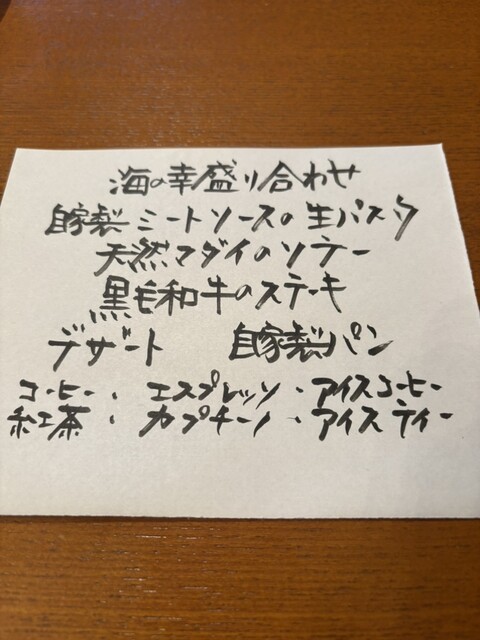 海の幸盛り合わせ
自家製ミートソースの生パスタ
天然マダイのソテー
黒毛和牛のステーキ
デザート 自家製パン
コーヒー・エスプレッソ・アイスコーヒー
紅茶・カプチーノ・アイスティー